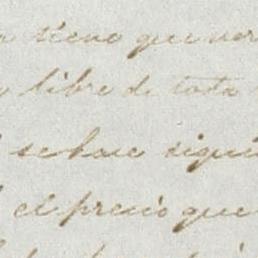 tiene que ver
y libre de toda
se hace sigui
el precio que